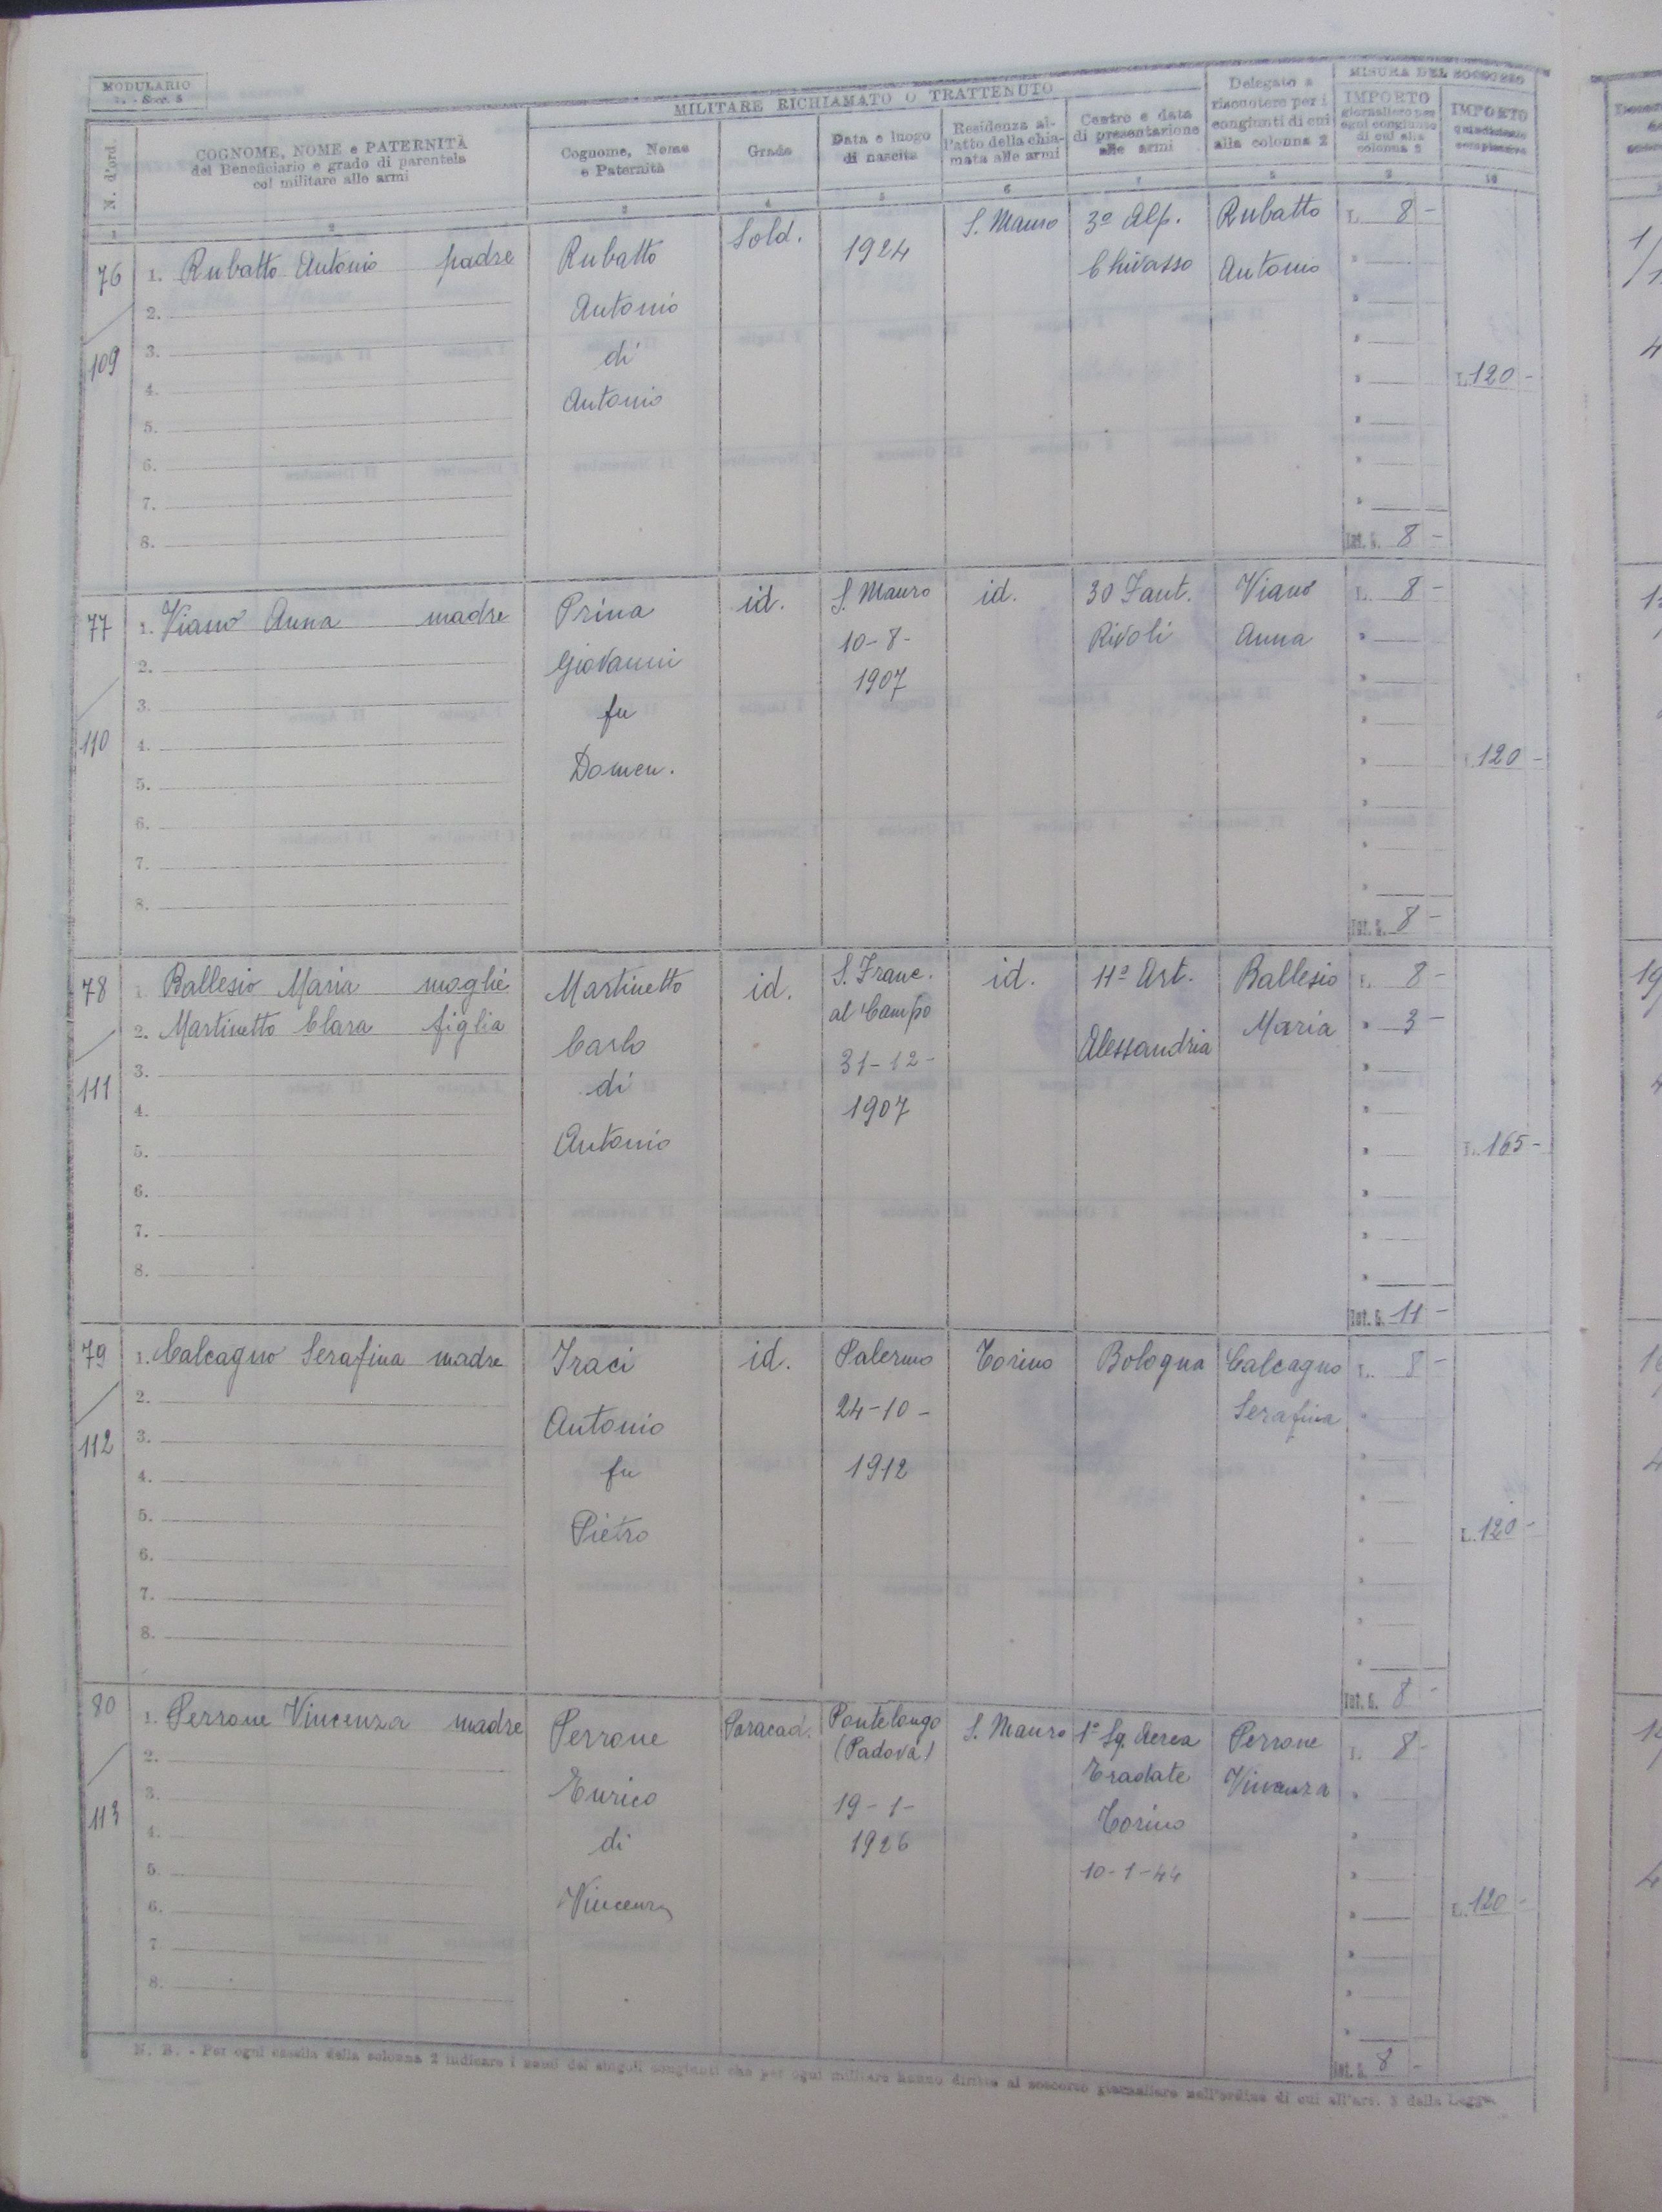 MODULARIO
MILITARE RICHIAMATO O TRATTENUTO
MISURA DEL SOCCORSO
N. d'ord.
COGNOME, NOME e PATERNITÀ
del Beneficiario e grado di parentela
col militare alle armi
Cognome, Nome
e Paternità
Grado
Data e luogo
di nascita
Residenza al-
l'atto della chia-
mata alle armi
Centro e data
di presentazione
alle armi
Delegato a
riscuotere per i
congiunti di cui
alla colonna 2
IMPORTO
giornaliero per
ogni congiunto
di cui alla
colonna 2
IMPORTO
1 2 3 4 5 6 7 8 9 10
76
109
1. Rubatto Antonio padre
2.
3.
4.
5.
6.
7.
8.
Rubatto
Antonio
di
Antonio
Sold.
1924
S. Mauro
3º Alp.
Chivasso
Rubatto
Antonio
L. 8 -
Tot. L. 8 -
L. 120 -
77
110
1. Viano Anna madre
2.
3.
4.
5.
6.
7.
8.
Prina
Giovanni
fu
Domen.
id.
S. Mauro
10-8-
1907
id.
30 Fant.
Rivoli
Viano
Anna
L. 8 -
Tot. L. 8 -
L. 120 -
78
111
1. Ballesio Maria moglie
2. Martinetto Clara figlia
3.
4.
5.
6.
7.
8.
Martinetto
Carlo
di
Antonio
id.
S. Franc.
al Campo
31-12-
1907
id.
11º Art.
Alessandria
Ballesio
Maria
L. 8 -
" 3 -
Tot. L. 11 -
L. 165 -
79
112
1. Calcagno Serafina madre
2.
3.
4.
5.
6.
7.
8.
Iraci
Antonio
fu
Pietro
id.
Palermo
24-10-
1912
Torino
Bologna
Calcagno
Serafina
L. 8 -
Tot. L. 8 -
L. 120 -
80
113
1. Perrone Vincenza madre
2.
3.
4.
5.
6.
7.
8.
Perrone
Enrico
di
Vincenza
Paracad.
Pontelongo
(Padova)
19-1-
1926
S. Mauro
1º Sq. Aerea
Tradate
Torino
10-1-44
Perrone
Vincenza
L. 8 -
Tot. L. 8 -
L. 120 -
N. B. - Per ogni casella della colonna 2 indicare i nomi dei singoli congiunti che per ogni militare hanno diritto al soccorso giornaliero nell'ordine di cui all'art. 3 della Legge.